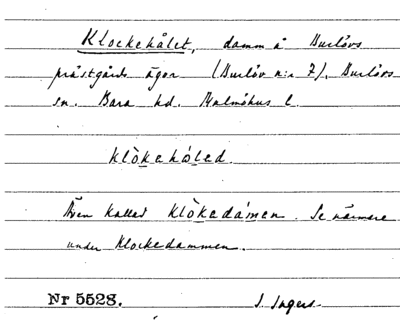 Klockehålet, damm å Burlövs
prästgårds ägor (Burlöv n:r 7), Burlövs
sn. Bara hd. Malmöhus l.
klòkehȧ́led.
Även kallad klòkedàmen. Se närmare
under Klockedammen.
Nr 5528. I. Ingers.